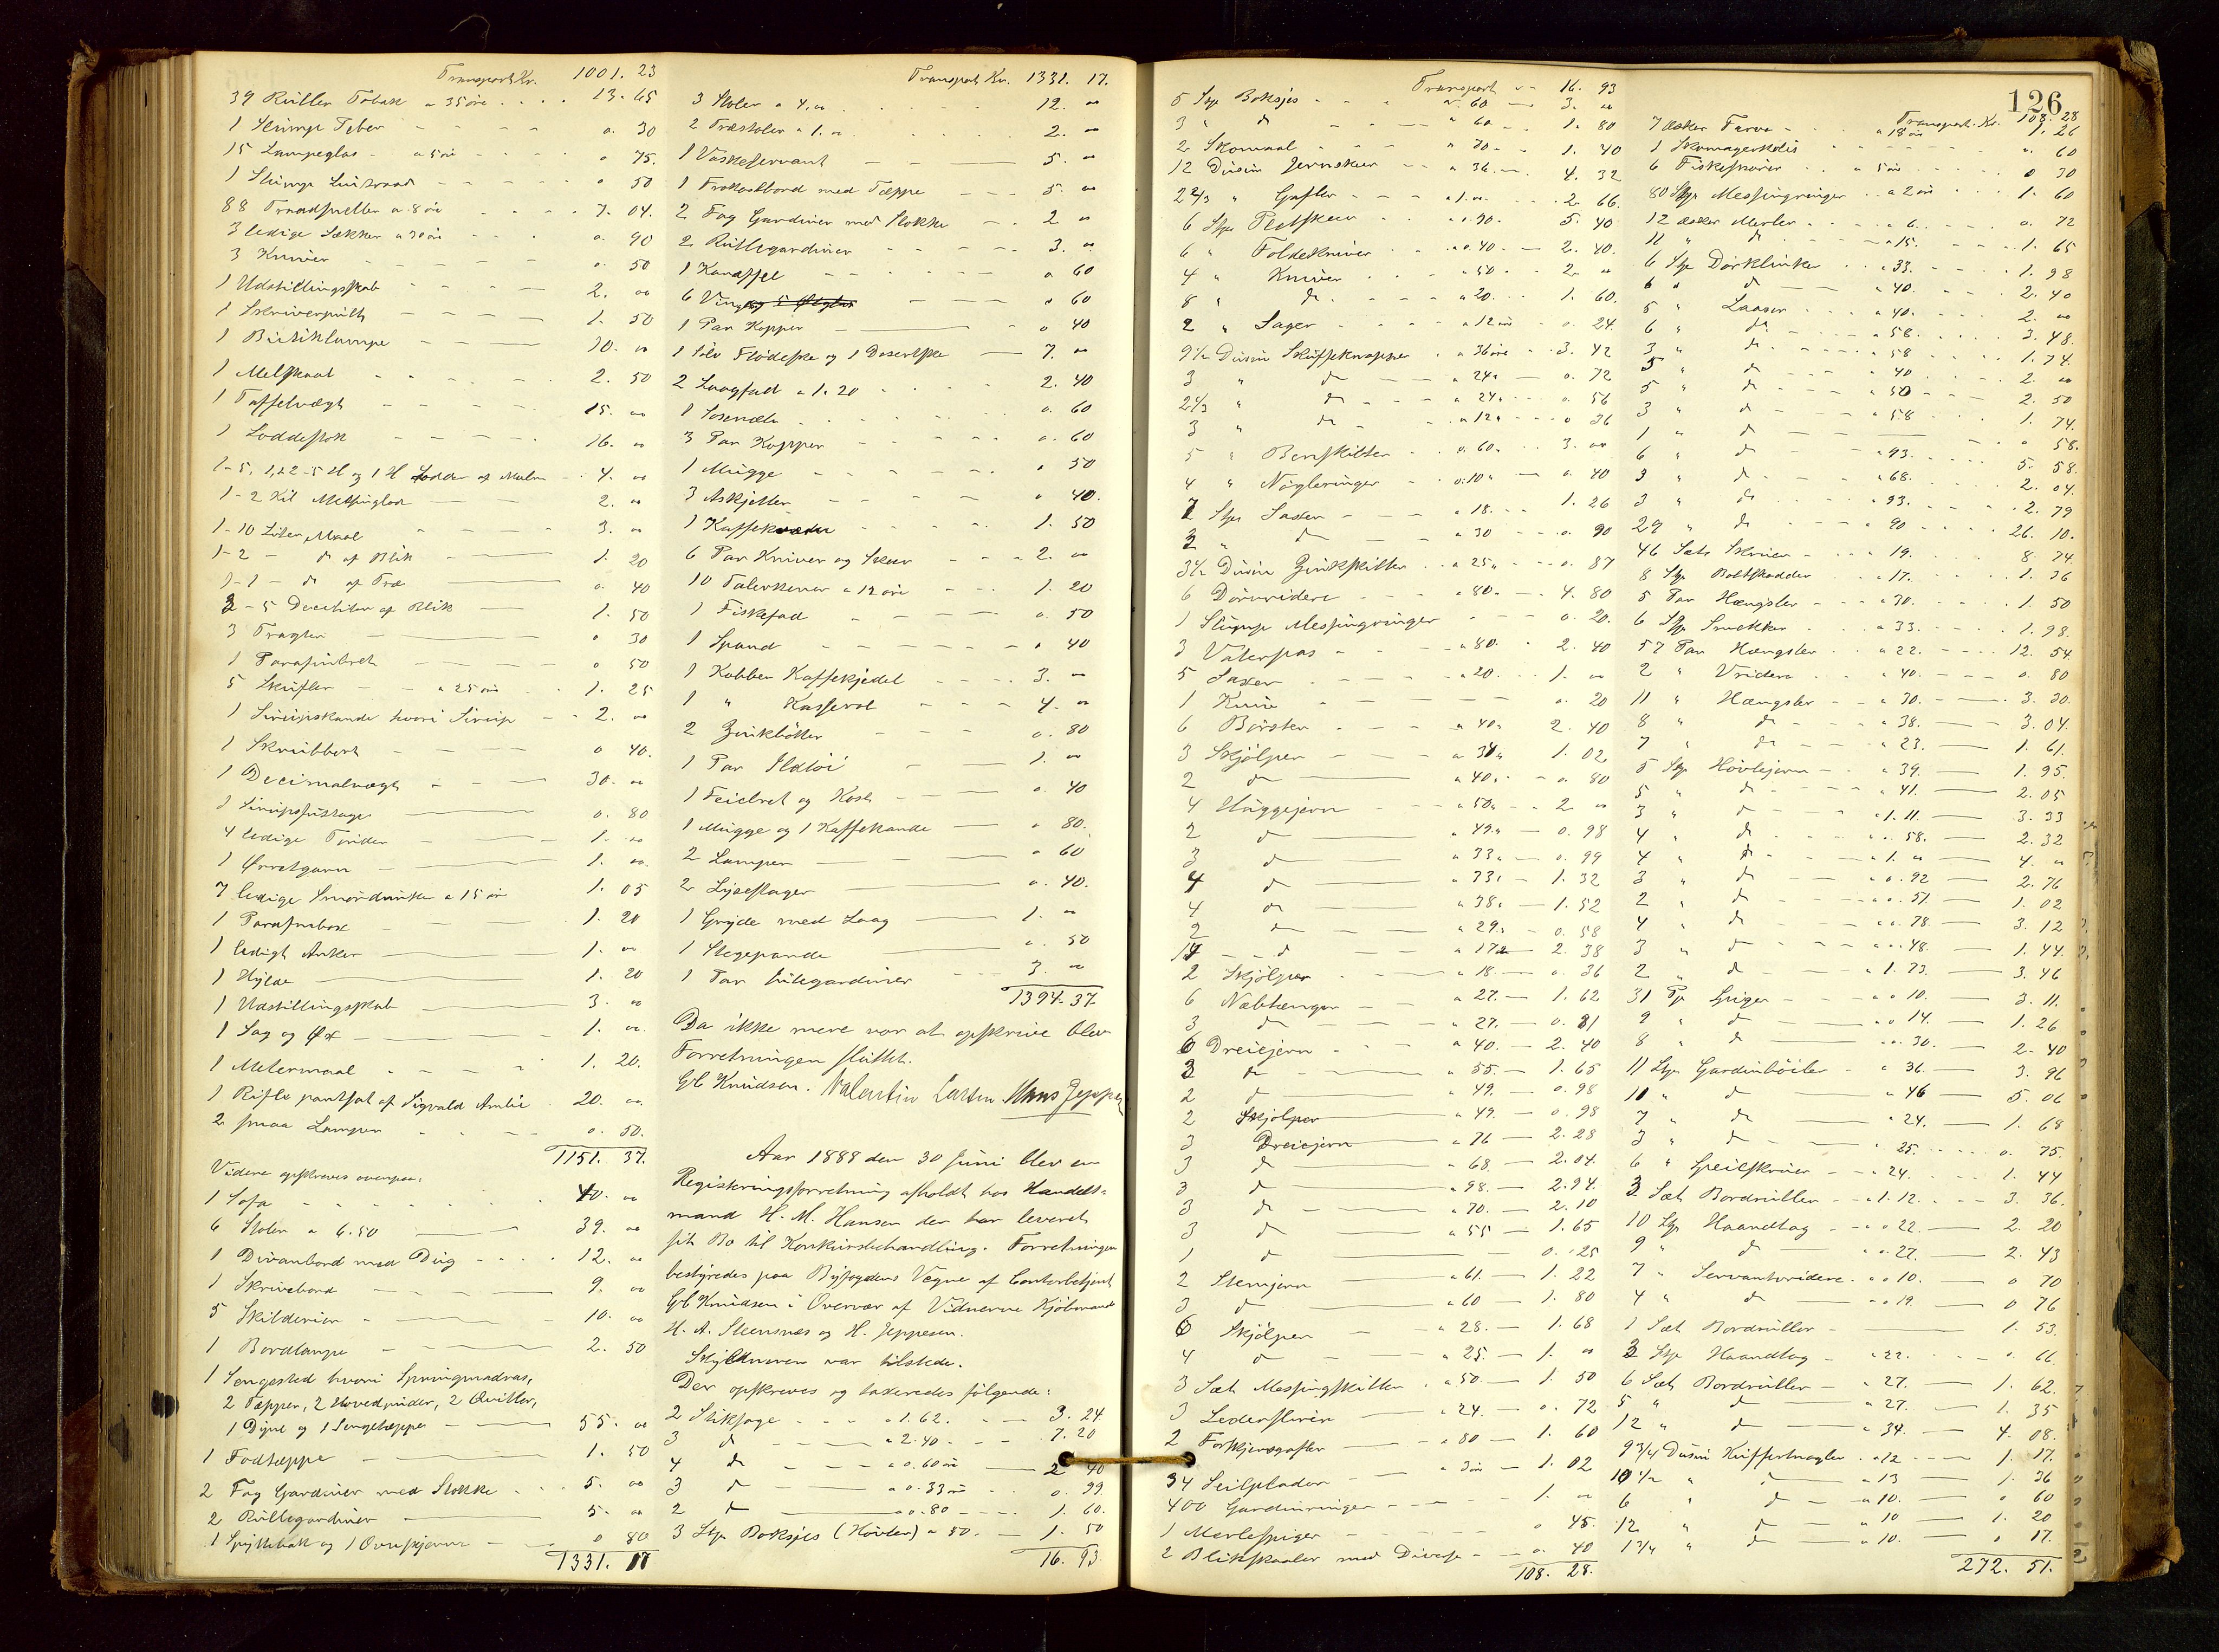 Transport Kr. 1001. 23
39 Ruller Tobak a 35 øre 13. 65
1 Slump Tobak 0. 30
15 Lampeglas a 5 øre 0 75.
1 Slump 0 50
88 Traadsneller a 8 øre 7. 04.
3 ledige Sækker a 30 øre 0. 90
3 Kniver 0. 50
1 Udstillingsskab 2. 00
1 Skriverpult 1. 50
1 Butiklampe 10. 00
1 Melskaal 2. 50
1 Taffelvægt 15. 00
1 Loddestok 16. 00
4. 00
1-2 Kil Messinglod 2. 00
1-10 Liter Maal 3. 00
1-2 - do af Blik 1. 20
1-1 - do af Træ 0. 40
3-5 Deciliter af Blik 1. 50
3 Tragter 0 30
1 Parafinbret 0 50
5 Skufler a 25 øre 1. 25
1 Sirupskande hvori Sirup 2. 00
1 Skrubbert 0 40.
1 Decimalvægt 30. 00
1 Sirupsfustage 0. 80
4 ledige Tønder 1. 00
1 Ørretgarn 1. 00.
7 ledige Smørdunke a 15 øre 1. 05
1 Parafinbox 1. 20
1 ledigt Anker 1. 00
1 Hylde 1. 20
1 Udstillingsskab 3. 00
1 Sag og Øx 1. 00.
1 Metermaal 1. 20.
1 Rifle pantsat af Sigvald Amlie 20. 00.
2 smaa Lamper 0. 50.
1151. 37.
Videre opskreves ovenpaa:
1 Sofa 40. 00
6 Stoler a 6.50 39. 00
1 Divanbord med Dug 12. 00
1 Skrivebord 9. 00
5 Skilderier 10. 00
1 Bordlampe 2. 50
1 Sengested hvori Springmadras,
2 Tæpper, 2 Hovedpuder, 2 Qvilter,
1 Dyne og 1 Sengetæppe 55. 00
1 Fodtæppe 1. 50
2 Fag Gardiner med Stokke 5. 00
2 Rullegardiner 5. 00
1 Spyttebak og 1 Ovnskjerm 0 80
1331. 17
Transport Kr. 1331. 17.
3 Stoler a 4.00 12. 00
2 Træstoler a 1.00 2. 00
1 Vaskeservant 5. 00
1 Frokostbord med Tæppe 5. 00
2 Fag Gardiner med Stokke 2 00
2 Rullegardiner 3. 00
1 0 60
6 Vinglas 0 60
1 Par Kopper 0 40
1 Sølv Flødeske og 1 Desertske 7. 00
2 Laagfad a 1.20 2. 40
1 0. 60
3 Par Kopper 0. 60
1 Mugge 0 50
3 Askjetter 0 40.
1 1. 50
6 Par Kniver og Skeer 2. 00
10 Talerkener a 12 øre 1. 20
1 Fiskefad 0. 50
1 Spand 0 40
1 Kobber Kaffekjedel 3. 00
1 " Kasserol 4. 00
2 Zinkbøtter 0. 80
1 Par Ildtøi 1. 00
1 Feiebret og Kost 0. 40
1 Mugge og 1 Kaffekande 0 80.
2 Lamper 0 60
2 Lysestager 0. 40.
1 Gryde med Laag 1. 00
1 Stegepande 0. 50
1 Par Rullegardiner 3. 00
1394. 37.
Da ikke mere var at opskrive blev
Forretningen sluttet.
Gb Knudsen. Valentin Larsen Hans Jeppesen
Aar 1888 den 30 Juni blev en
Registreringsforretning afholdt hos Handels-
mand H. M. Hansen der har leveret
sit Bo til Konkursbehandling. Forretningen
bestyredes paa Byfogdens Vegne af Contorbetjent
Gb Knudsen i Overvær af Vidnerne Kjøbmand
H. A. Steensnæs og H. Jeppesen.
Skyldneren var tilstede.
Der opskreves og taxeredes følgende:
2 Stiksage a 1.62. 3. 24.
3 do a 2.40 7. 20
4 do a 0.60 øre 2 40
3 do a 0.33 øre 0. 99.
2 do a 0.80 1. 60.
3 Stk Boksjes (Høvler) a 50. 1. 50
16. 93
126
Transport 16. 93
5 Stk Boksjes a 60 3. 00
3 " do a 60 1. 80
2 Skomaal a 70 1. 40
12 Dusin Jernskeer a 36 4. 32
2 2/3 " Gafler a 1.00 2. 66.
6 Stk Pletskeer a 0.90. 5. 40
6 " Foldekniver a 0.40. 2. 40.
4 " Kniver a 50 2. 00
8 " do a 20. 1. 60.
2 " Sager a 12 øre 0. 24.
9 1/2 Dusin Skuffeknapper a 36 øre 3. 42
3 " do a 24 0. 72
2 1/3 " do a 24 0. 56
3 " do a 12 0 36
5 " Benskilter a 60 3. 00
4 " Nøgleringer a 10 0. 40
7 Stk Saxer a 18. 1. 26
3 " do a 30 0. 90
3 1/2 Dusin Zinkskilter a 25 0. 87
6 Dørvridere a 80. 4. 80
1 Slump Messingringer 0. 20.
3 Vaterpas a 80. 2. 40
5 Saxer a 20. 1. 00
1 Kniv 0. 20
6 Børster a 40 2. 40
3 Skjølper a 34 1. 02
2 do a 40 0. 80
4 Huggejern a 50 2. 00
2 do a 49 0. 98
3 do a 33 0. 99
4 do a 33 1. 32
4 do a 38 1. 52
2 do a 29 0. 58
14 do a 17 2. 38
2 Skjølper a 18. 0. 36
6 Nebtænger a 27. 1. 62
3 do a 27. 0. 81
6 Dreiejern a 40. 2. 40
3 do a 55. 1. 65
2 do a 49. 0. 98
2 Skjølper a 49. 0. 98
3 Dreiejern a 76 2. 28
3 do a 68. 2. 04.
3 do a 98. 2. 94.
3 do a 70. 2. 10
3 do a 55 1. 65
1 do 0. 25
2 Stemjern a 61. 1. 22
3 do a 60 1. 80
6 Skjølper a 28. 1. 68
4 do a 25. 1. 00
3 Sæt Messingskilter a 50. 1. 50
3 a 24. 0. 72
2 Forskjærsgafler a 80 1. 60
34 Seilplader a 3 øre 1. 02
400 Gardinringer 1. 00
1 Merlespiger 0 45.
2 Blikskaaler med Diverse 0. 40
108. 28.
Transport Kr. 108. 28
7 Æsker Farve a 18 øre 1. 26
1 0. 60
6 a 5 øre 0 30
80 Stk Messingringer a 2 øre 1. 60
12 Æsker a 6. 0. 72
11 " do a 15. 1. 65
6 Stk Dørklinker a 33. 1. 98
6 " do a 40. 2. 40
5 " Laaser a 40. 2. 00
6 " do a 58. 3. 48.
3 " do a 58 1. 74.
5 " do a 40 2. 00
5 " do a 50 2. 50
3 " do a 58 1. 74.
1 " do 0 58.
6 " do a 93. 5. 58.
3 " do a 68. 2. 04.
3 " do a 93. 2. 79
29 " do a 90 26. 10.
46 Sæt Skruer a 19. 8 74.
8 Stk Boltskodder a 17. 1. 36
5 Par Hængsler a 30. 1. 50
6 Stk a 33. 1. 98.
57 Par Hængsler a 22. 12. 54.
2 " Vridere a 40. 0. 80
11 " Hængsler a 30. 3. 30.
8 " do a 38. 3. 04.
7 " do a 23. 1. 61.
5 Stk Høvlejern a 39. 1. 95.
5 " do a 41. 2. 05
3 " do a 1.11. 3. 33
4 " do a 58. 2. 32
4 " do a 1.00 4. 00
3 " do a 0.92 2. 76
2 " do a 0.51. 1. 02
4 " do a 0.78. 3. 12
3 " do a 0.48. 1. 44.
2 " do a 1.73. 3. 46
31 Spiger a 0 10. 3. 11.
9 " do a 0 14. 1. 26
8 " do a 0.30. 2. 40
11 Stk Gardinbøiler a 36 3. 96
11 " do a 46 5. 06
7 " do a 24. 1. 68
3 " do 25. 0. 75.
6 " Speilskruer a 24. 1. 44
3 Sæt Bordruller a 1.12. 3. 36.
10 Stk Haandtag a 0 22. 2. 20
9 " do a 0.27. 2. 43
7 " Servantvridere a 0 10. 0 70
4 " do a 0 19. 0 76
1 Sæt Bordruller 1. 53.
3 Stk Haandtag a 22. 0. 66.
6 Sæt Bordruller a 27. 1. 62.
5 " do a 27. 1. 35
12 " do a 34. 4. 08.
9 3/4 Dusin Kuffertnagler a 12 1. 17.
10 1/2 " do a 13 1. 36
6 " do a 10. 0 60
12 " do a 10 1. 20
1 3/4 " do a 10. 0 17.
272. 51.